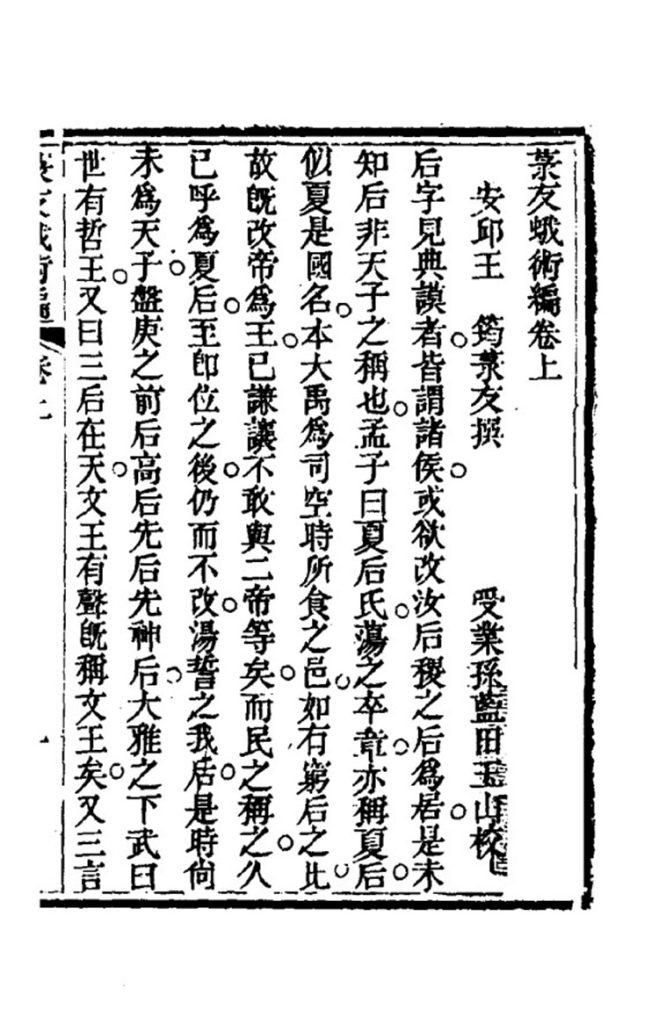 菉友蛾術編卷上
安邱王　筠菉友撰　受業孫藍田玉山校
后字見典謨者皆謂諸侯或欲改汝后稷之后爲居是未
知后非天子之稱也孟子曰夏后氏蕩之卒章亦稱夏后
似夏是國名本大禹爲司空時所食之邑如有窮后之比
故旣改帝爲王已謙讓不敢與二帝等矣而民之稱之久
已呼爲夏后至卽位之後仍而不改湯誓之我后是時尙
未爲天子盤庚之前后高后先后先神后大雅之下武曰
世有哲王又曰三后在天文王有聲旣稱文王矣又三言
菉友蛾術編　卷上　一